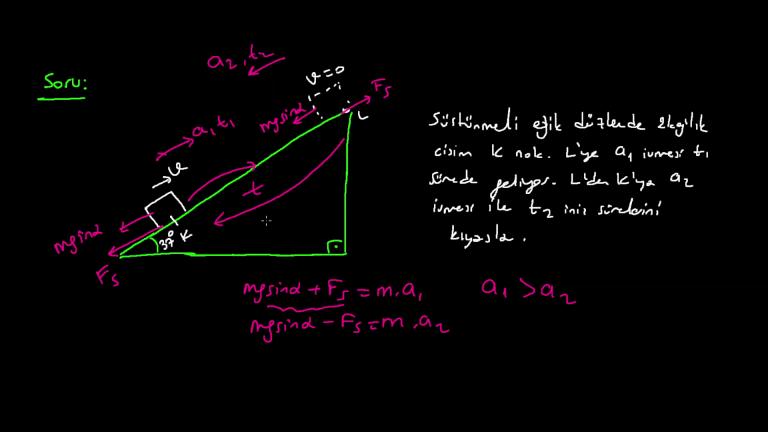 Soru:
a2, t2
v=0
Fs
mgsinα
L
a1 t1
v
t
mgsinα
37° K
Fs
Sürtünmeli eğik düzlemde
cisim K nok. L'ye a1 ivmesi t1
sürede geliyor. L'den K'ya a2
ivmesi ile t2 iniş sürelerini
kıyasla.
mgsinα + Fs = m.a1 a1 > a2
mgsinα - Fs = m.a2